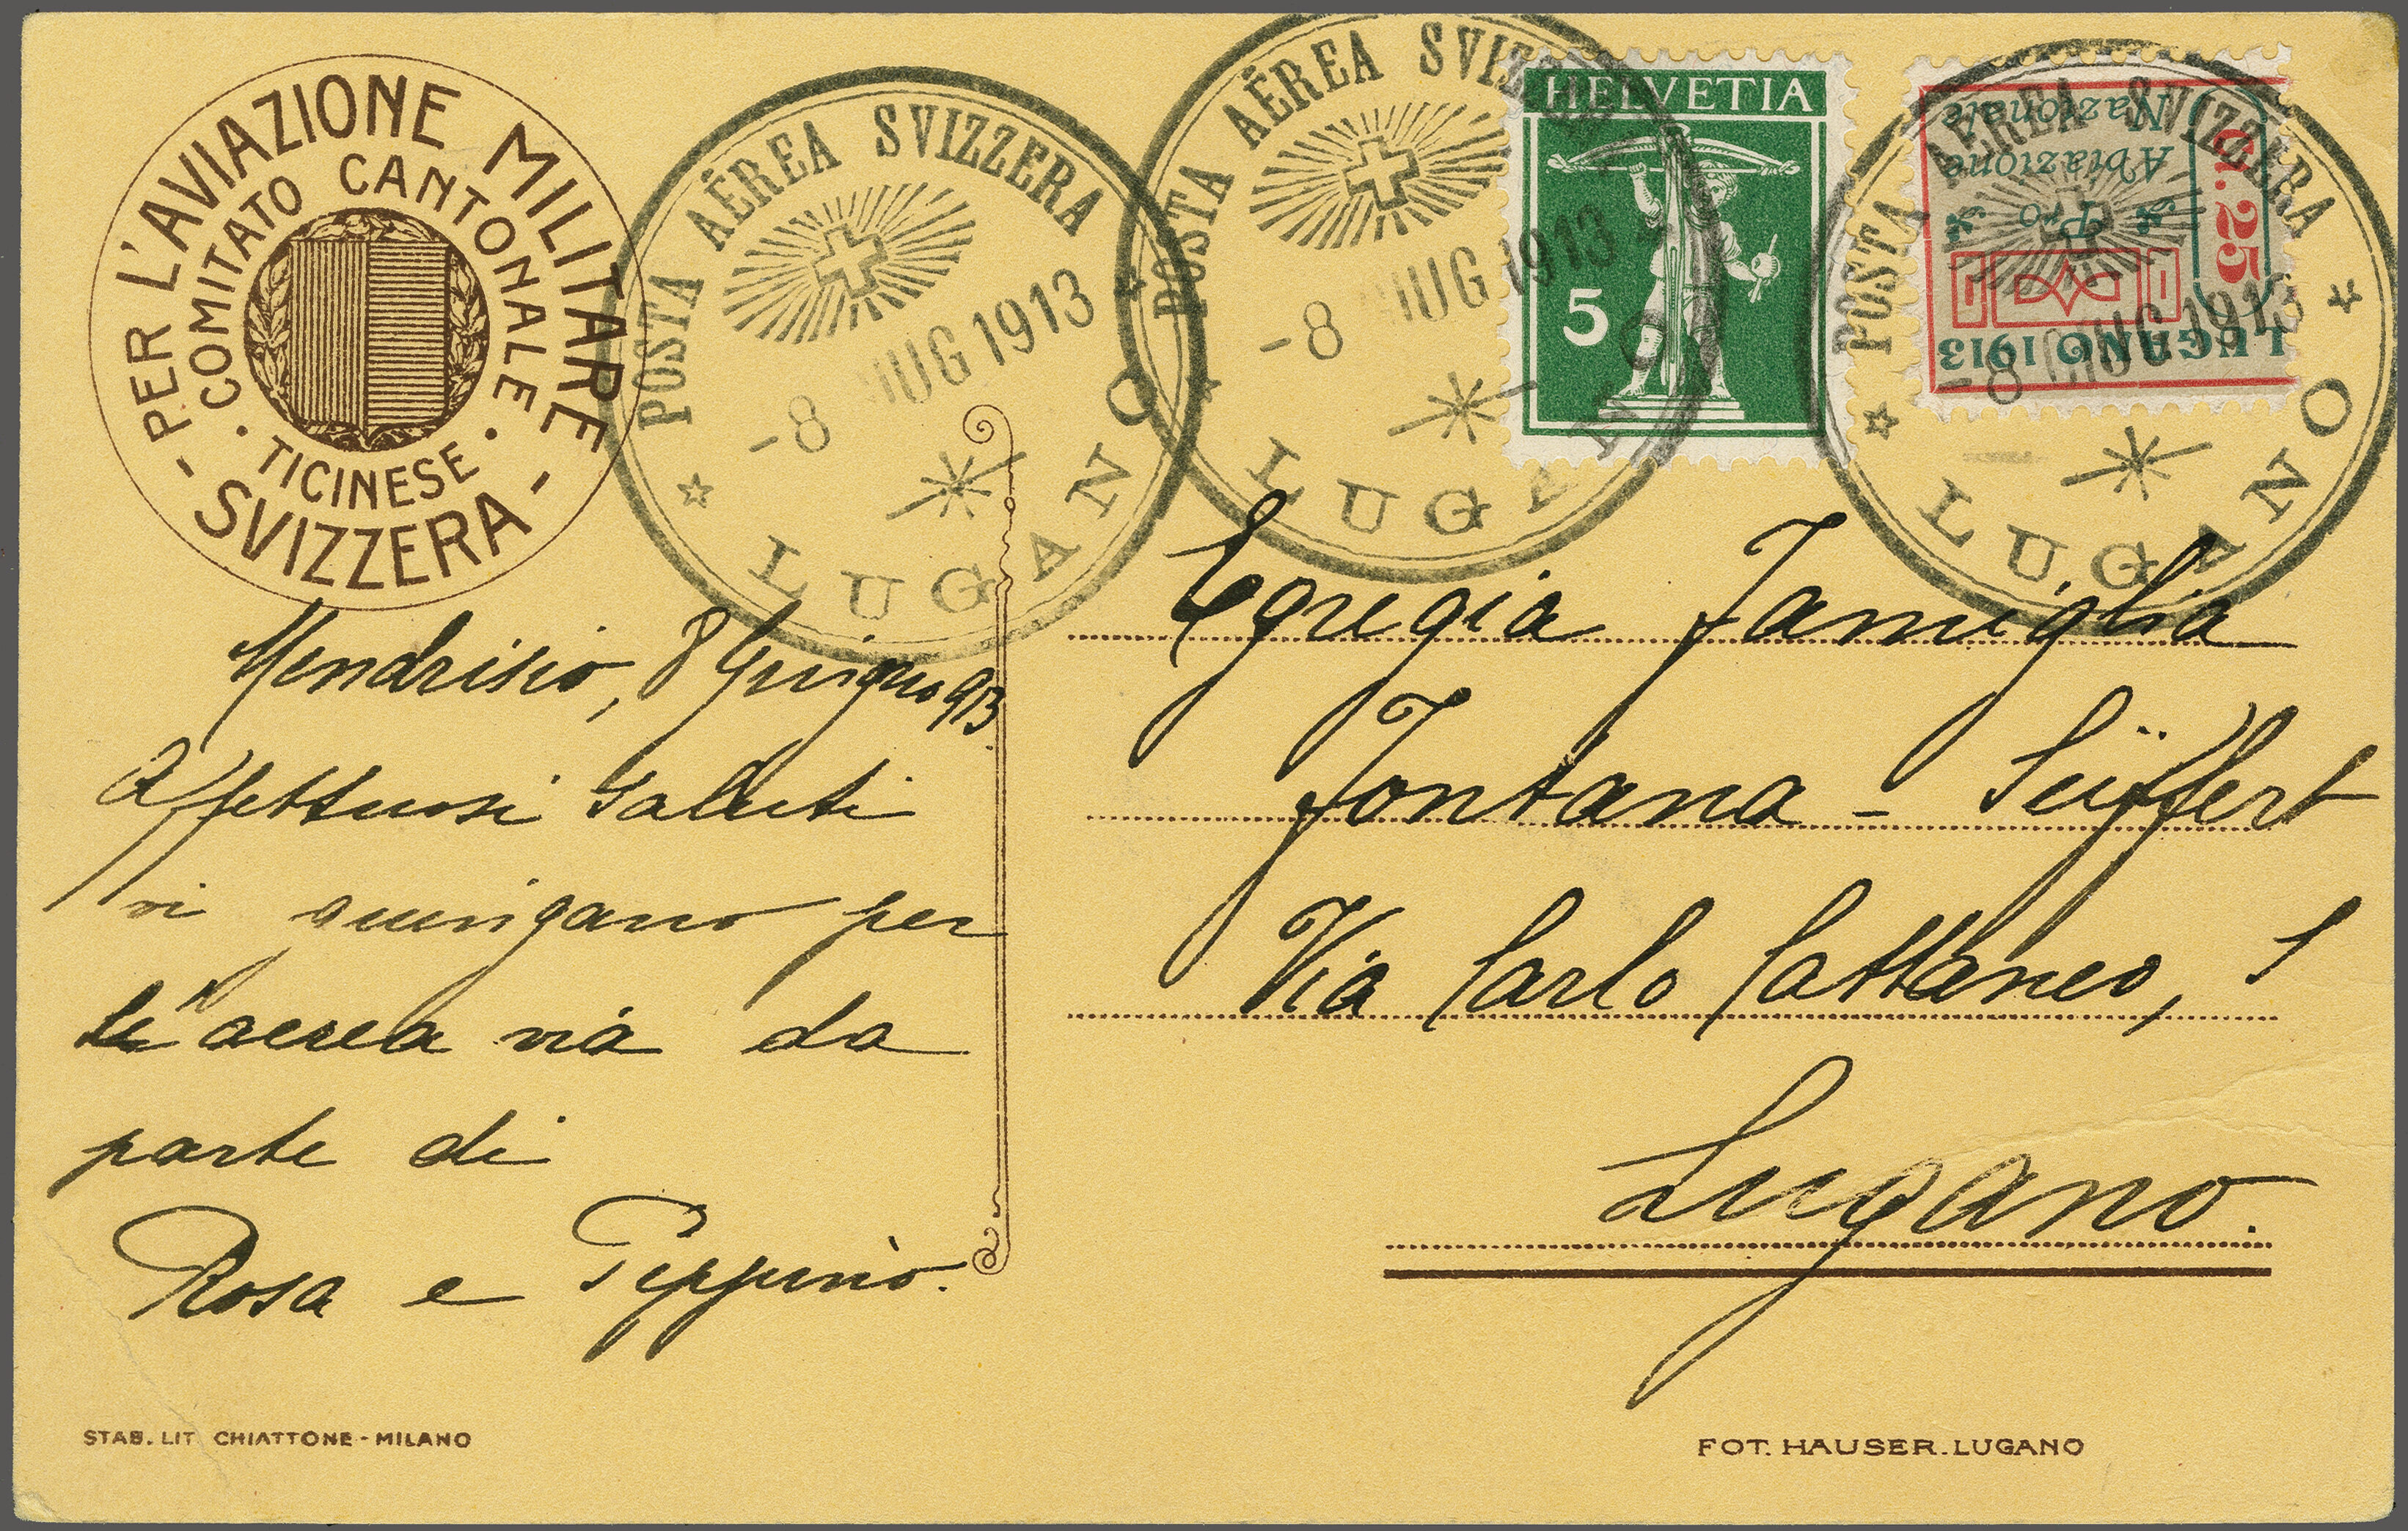 - PER L'AVIAZIONE MILITARE -
SVIZZERA
COMITATO CANTONALE
· TICINESE ·
POSTA AËREA SVIZZERA
-8 IUG 1913
LUGANO
POSTA AËREA SVIZZERA
-8 IUG 1913
LUGANO
HELVETIA
5
POSTA AEREA SVIZZERA
-8 GIUG 1913
LUGANO
LUGANO 1913
Pro
Aviazione
Nazionale
ct. 25
Mendrisio, 8 Giugno 913.
Affettuosi saluti
vi giungano per
aerea via da
parte di
Rosa e Peppino.
Egregia Famiglia
Fontana - Seiffert
Via Carlo Cattaneo, 1
Lugano.
STAB. LIT. CHIATTONE - MILANO
FOT. HAUSER. LUGANO